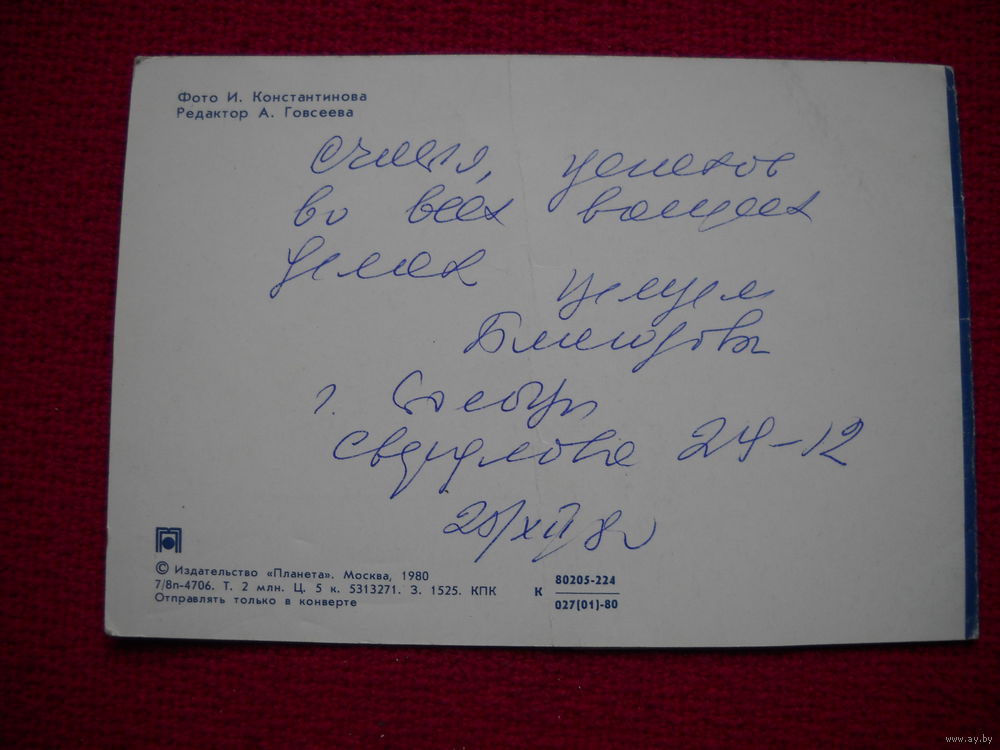 Фото И. Константинова
Редактор А. Говсеева
счастья, успехов
во всех ваших
делах желаем
г. Столбцы
Свердлова 24-12
20/XII 80
© Издательство «Планета». Москва, 1980
7/8п-4706. Т. 2 млн. Ц. 5 к. 5313271. З. 1525. КПК
Отправлять только в конверте
К 80205-224
027(01)-80
www.ay.by